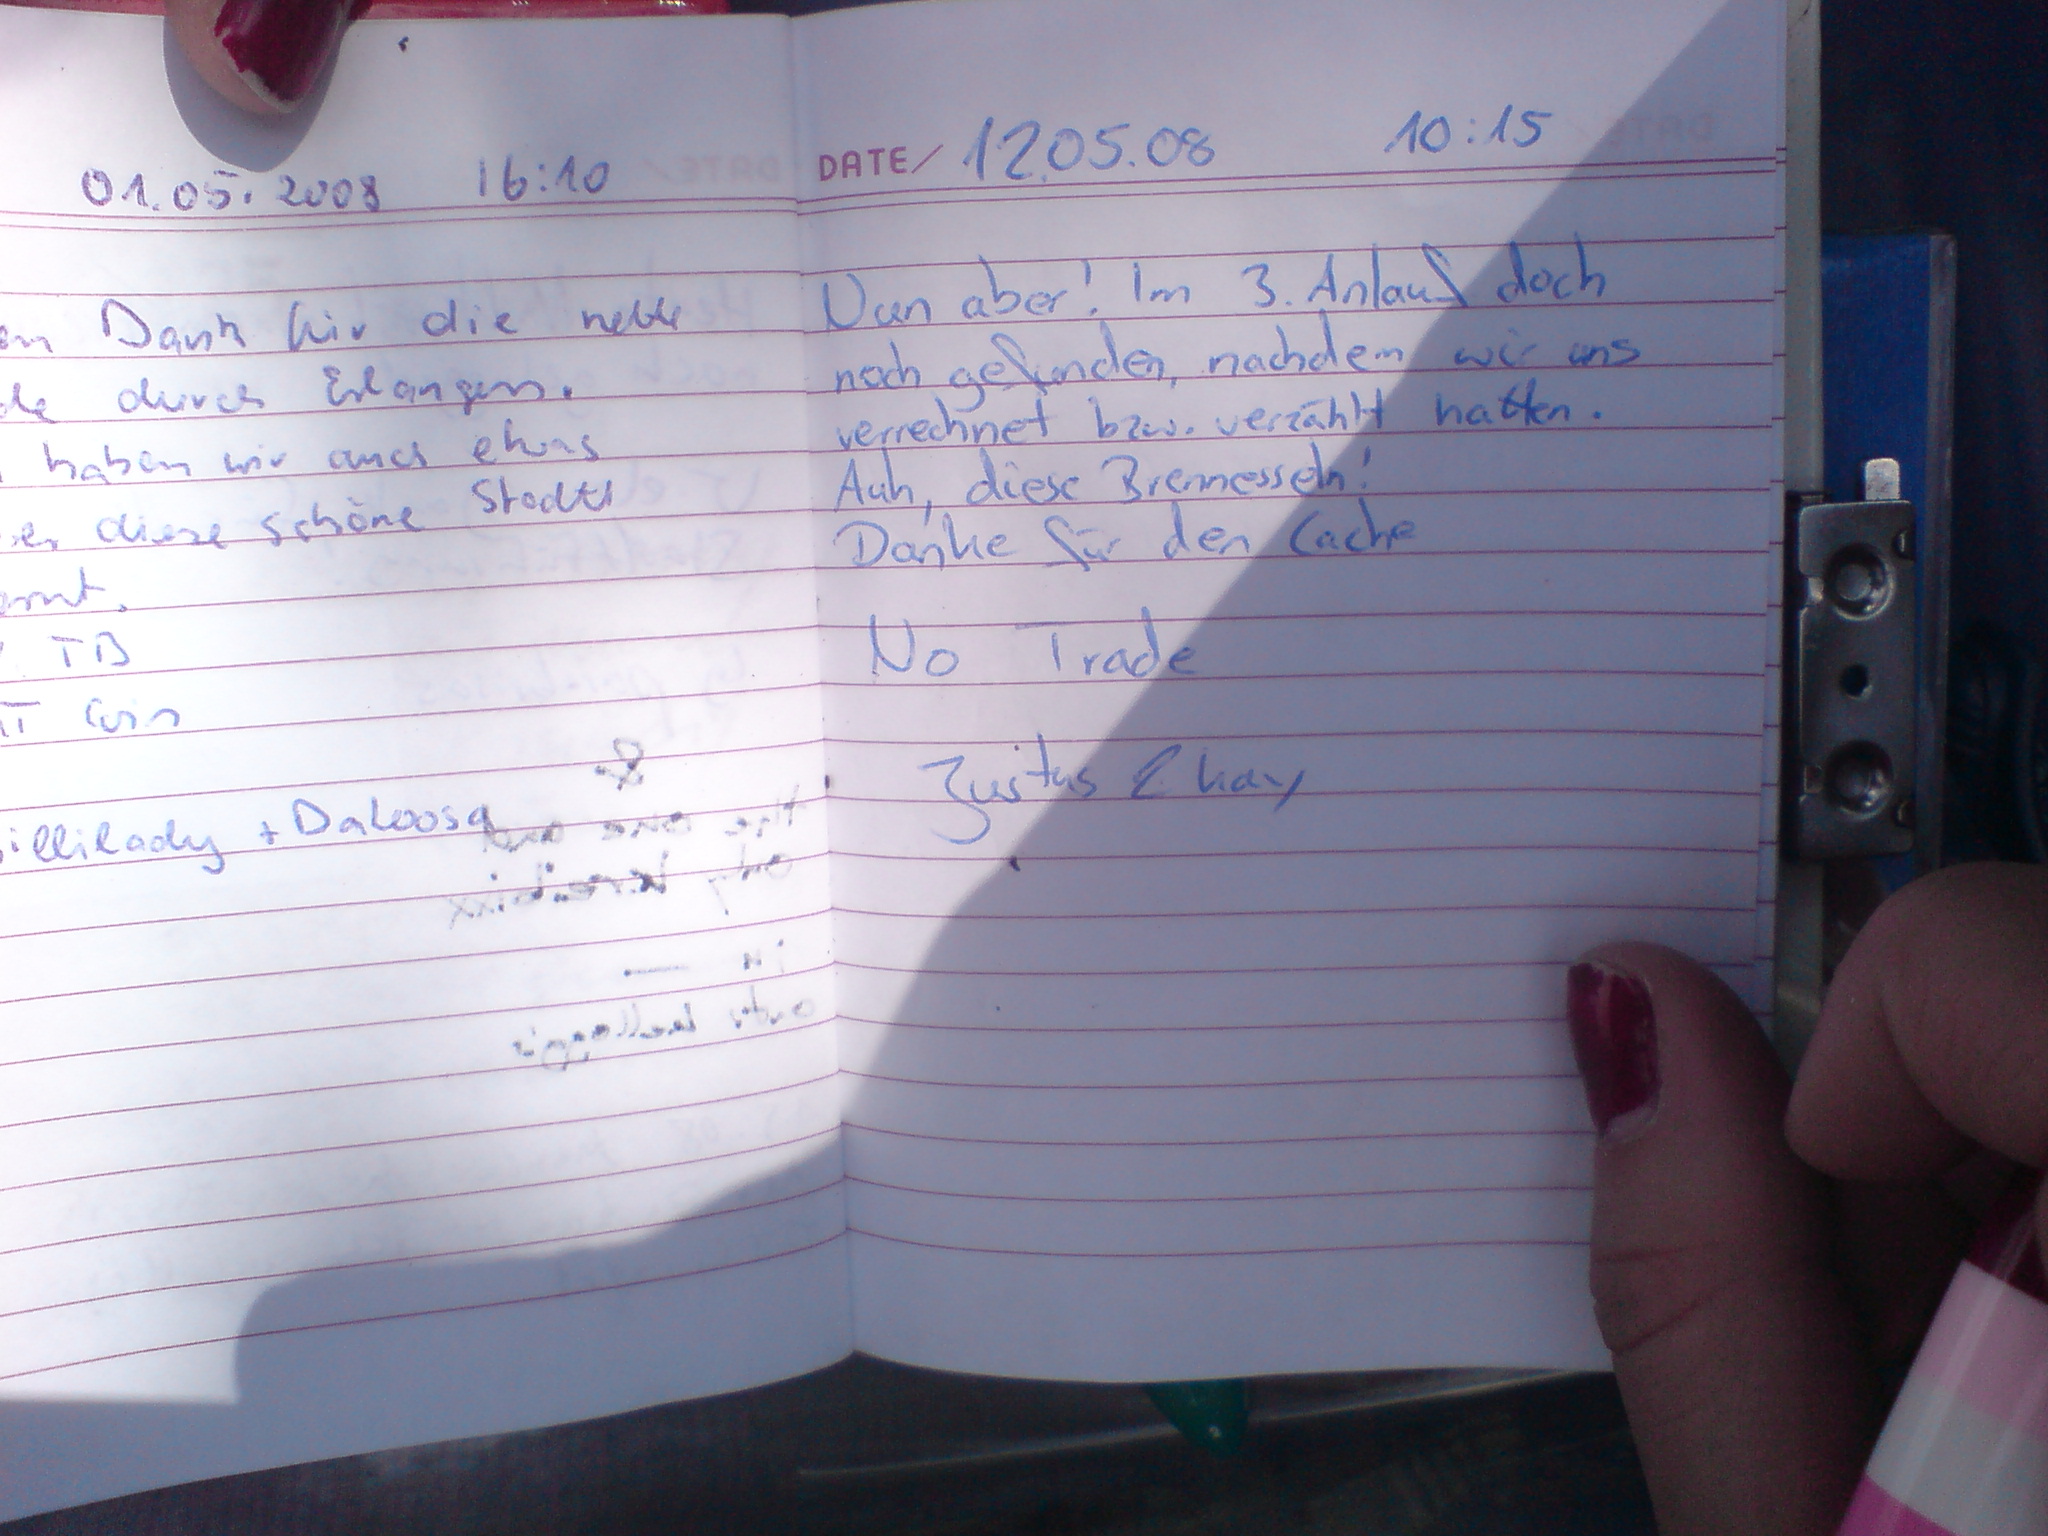 01.05.2008 16:10
Dank für die nette
durch Erlangen.
haben wir auch etwas
diese schöne Stadtl
TB
Coin
+ Daloosa
DATE/ 12.05.08 10:15
Nun aber! Im 3. Anlauf doch
noch gefunden, nachdem wir uns
verrechnet bzw. verzählt hatten.
Auh, diese Brennesseln!
Danke für den Cache
No Trade
Justus